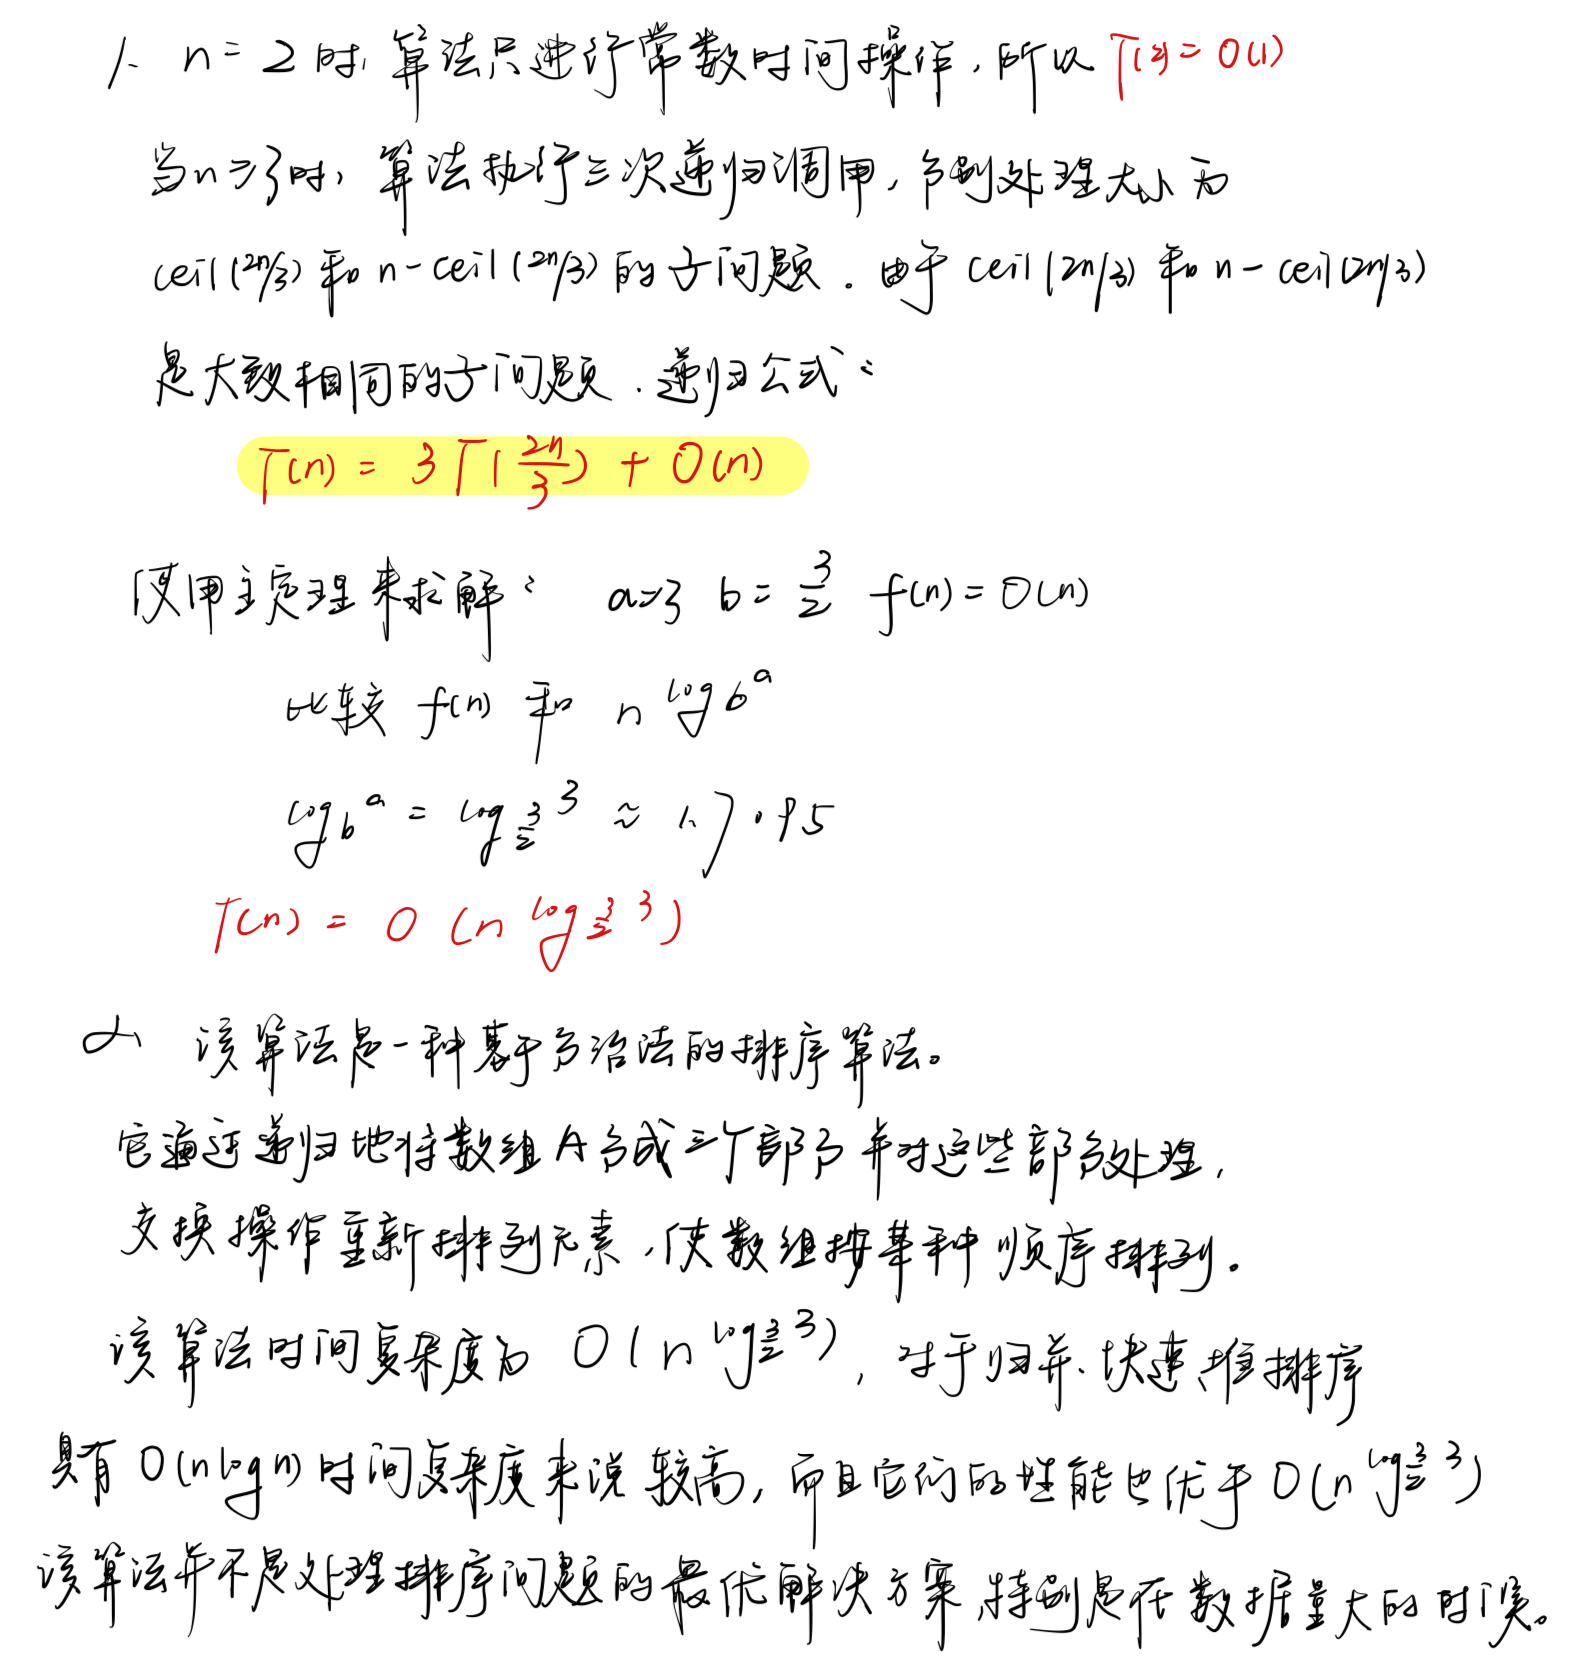 1. n = 2时, 算法只进行常数时间操作, 所以 T(2) = O(1)
当n≥3时, 算法执行三次递归调用, 分别处理大小为
ceil(2n/3) 和 n-ceil(2n/3) 的子问题. 由于 ceil(2n/3) 和 n-ceil(2n/3)
是大致相同的子问题. 递归公式:
T(n) = 3T(2n/3) + O(n)
使用主定理来求解: a=3 b=3/2 f(n)=O(n)
比较 f(n) 和 n^log_b^a
log_b^a = log_3/2^3 ≈ 1.7095
T(n) = O(n^log_3/2^3)
2. 该算法是一种基于分治法的排序算法。
它通过递归地将数组A分成三个部分并对这些部分处理,
交换操作重新排列元素,使数组按某种顺序排列。
该算法时间复杂度为 O(n^log_3/2^3), 对于归并、快速、堆排序
具有 O(nlogn) 时间复杂度来说较高, 而且它们的性能也优于 O(n^log_3/2^3)
该算法并不是处理排序问题的最优解决方案,特别是在数据量大的时候。